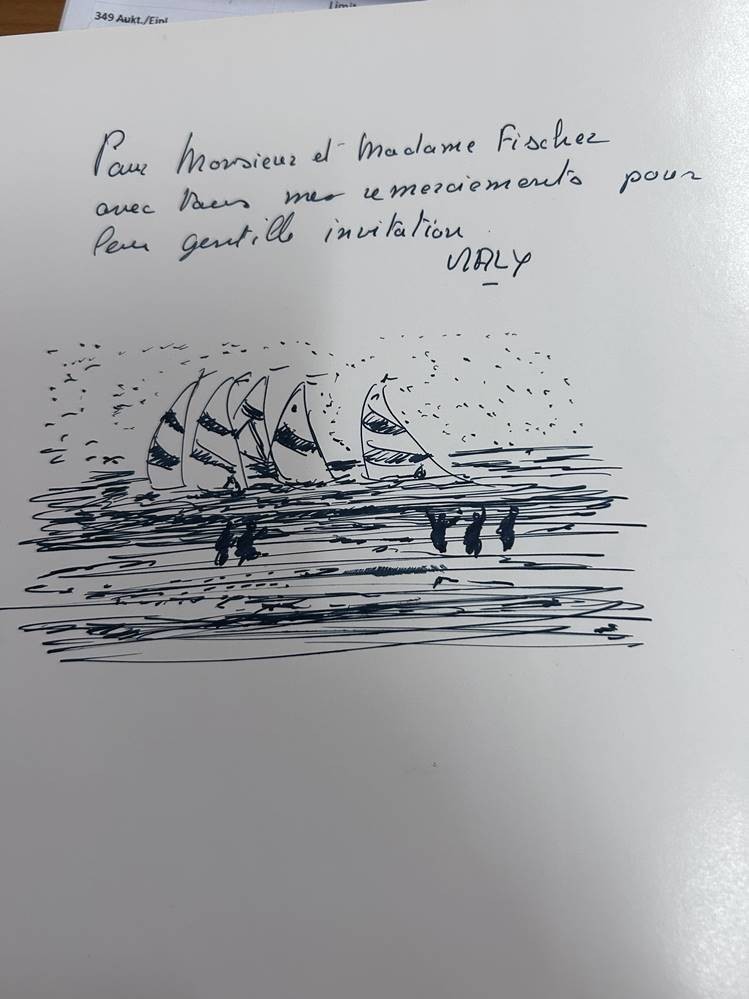 349 Aukt./Einl
Limit
Pour Monsieur et Madame Fischer
avec tous mes remerciements pour
leur gentille invitation